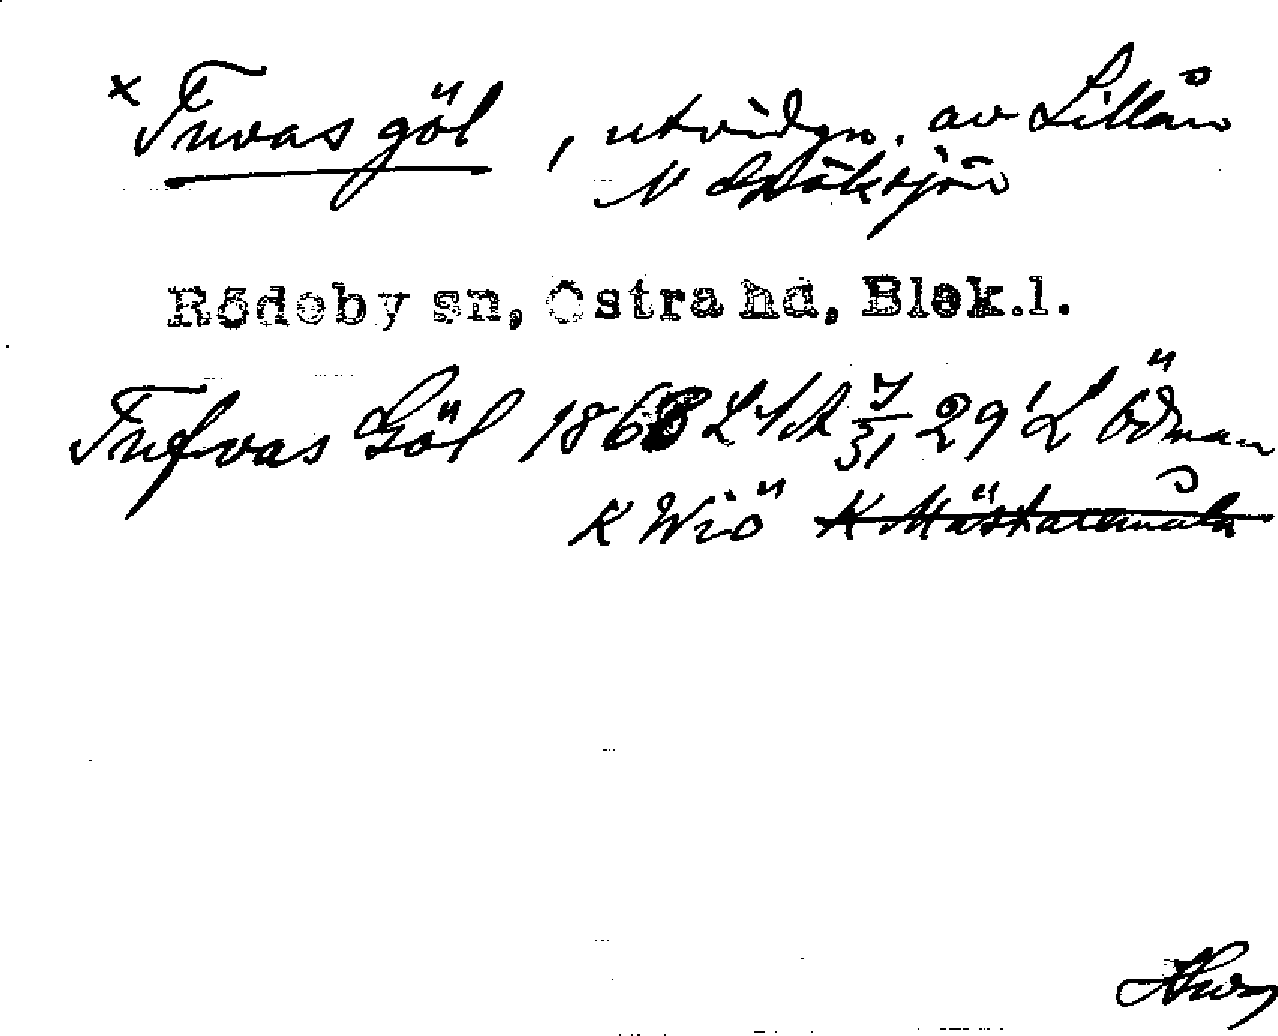 × Tuvas göl, utvidgn. av Lillån
N Spöksjön
Rödeby sn, Östra hd, Blek.l.
Tufvas Göl 1868 LSkA 7/31 29' L Ödman
K Wiö K Mästaremåla